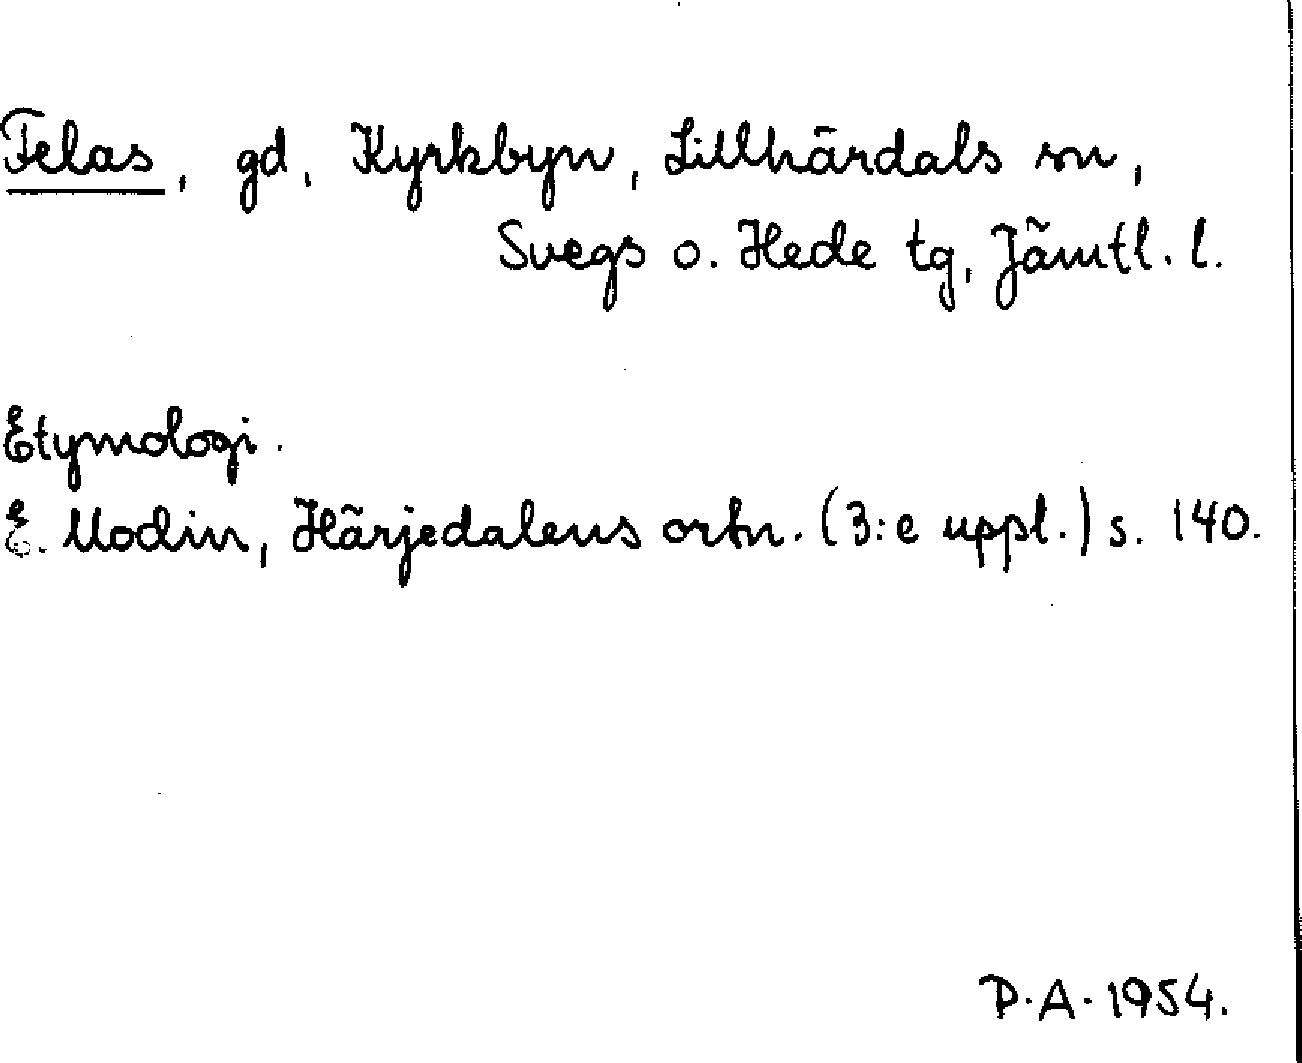 Felas, gd, Kyrkbyn, Lillhärdals sn,
Svegs o. Hede tg, Jämtl. l.
Etymologi.
E. Modin, Härjedalens ortn. (3:e uppl.) s. 140.
P.A. 1954.